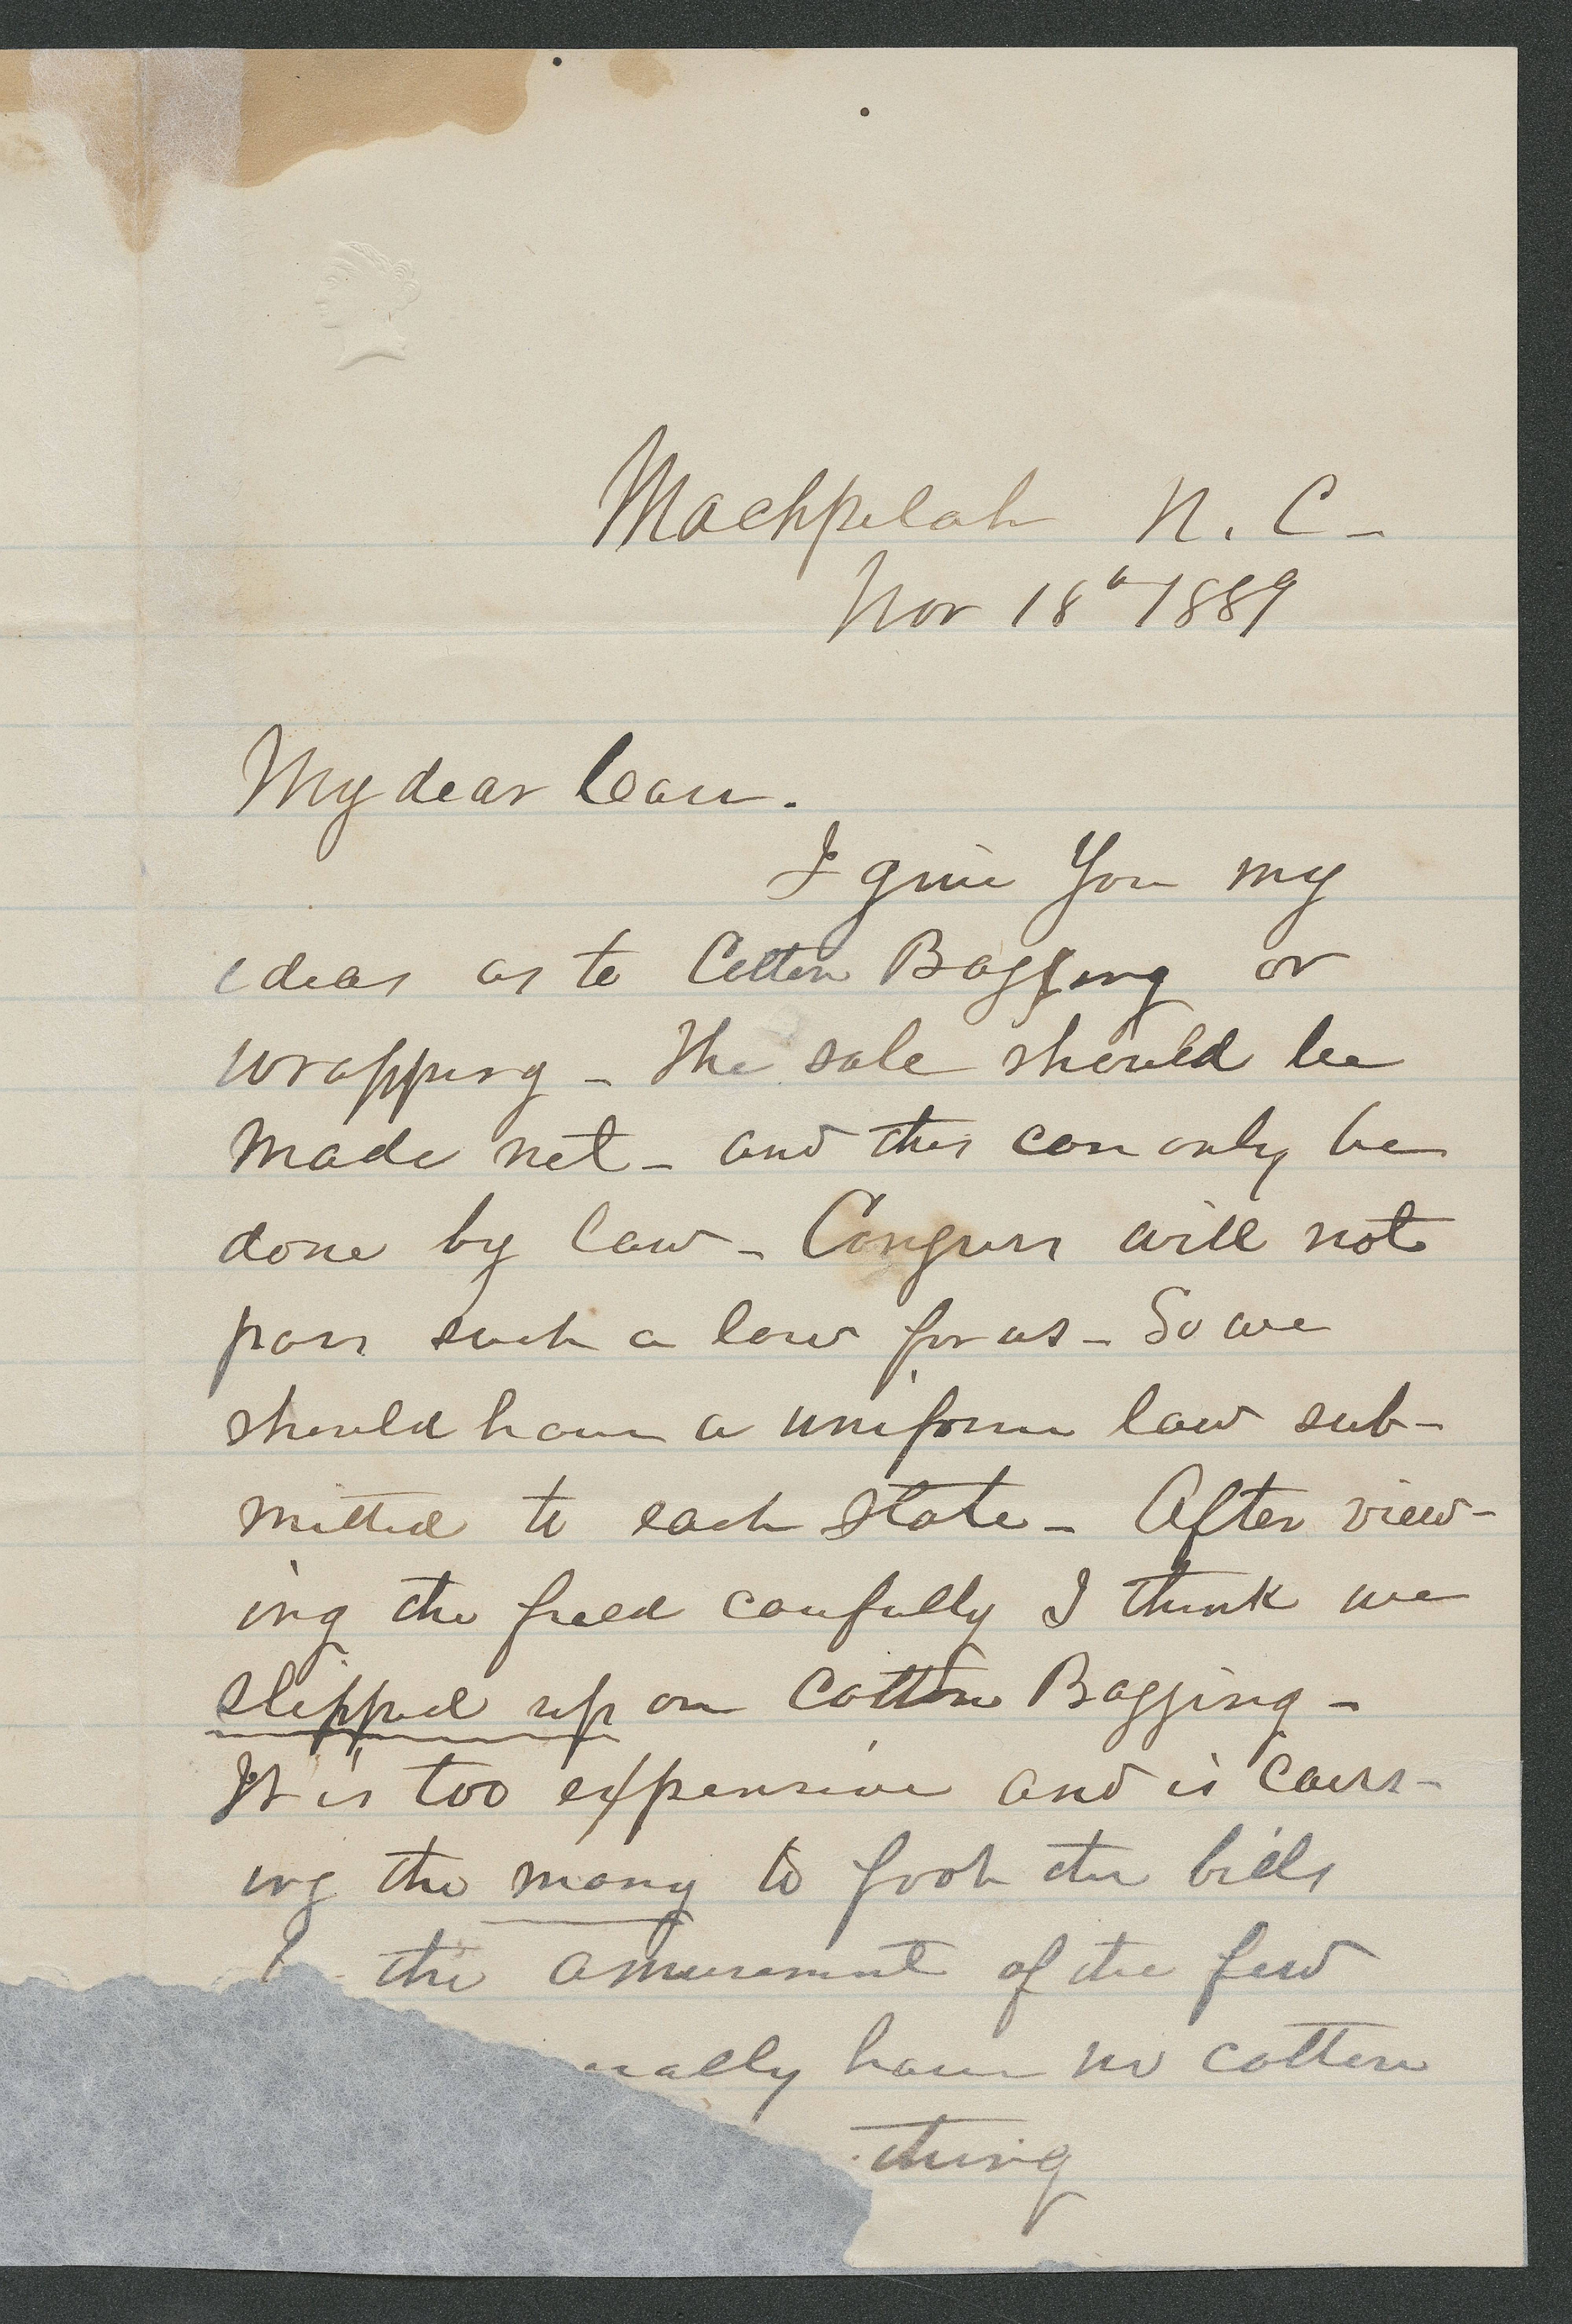 Machpelah N. C -
Nov 18th 1889
My dear Carr.
I give You my
ideas as to Cotton Bagging or
wrapping - The sale should be
made net - and this can only be
done by law - Congress will not
pass such a law for us - So we
should have a uniform law sub-
mitted to each State - After view-
ing the field carefully I think we
slipped up on Cotton Bagging -
It is too expensive and is caus-
ing the many to foot the bills
the amusement of the few
have no cotton
thing